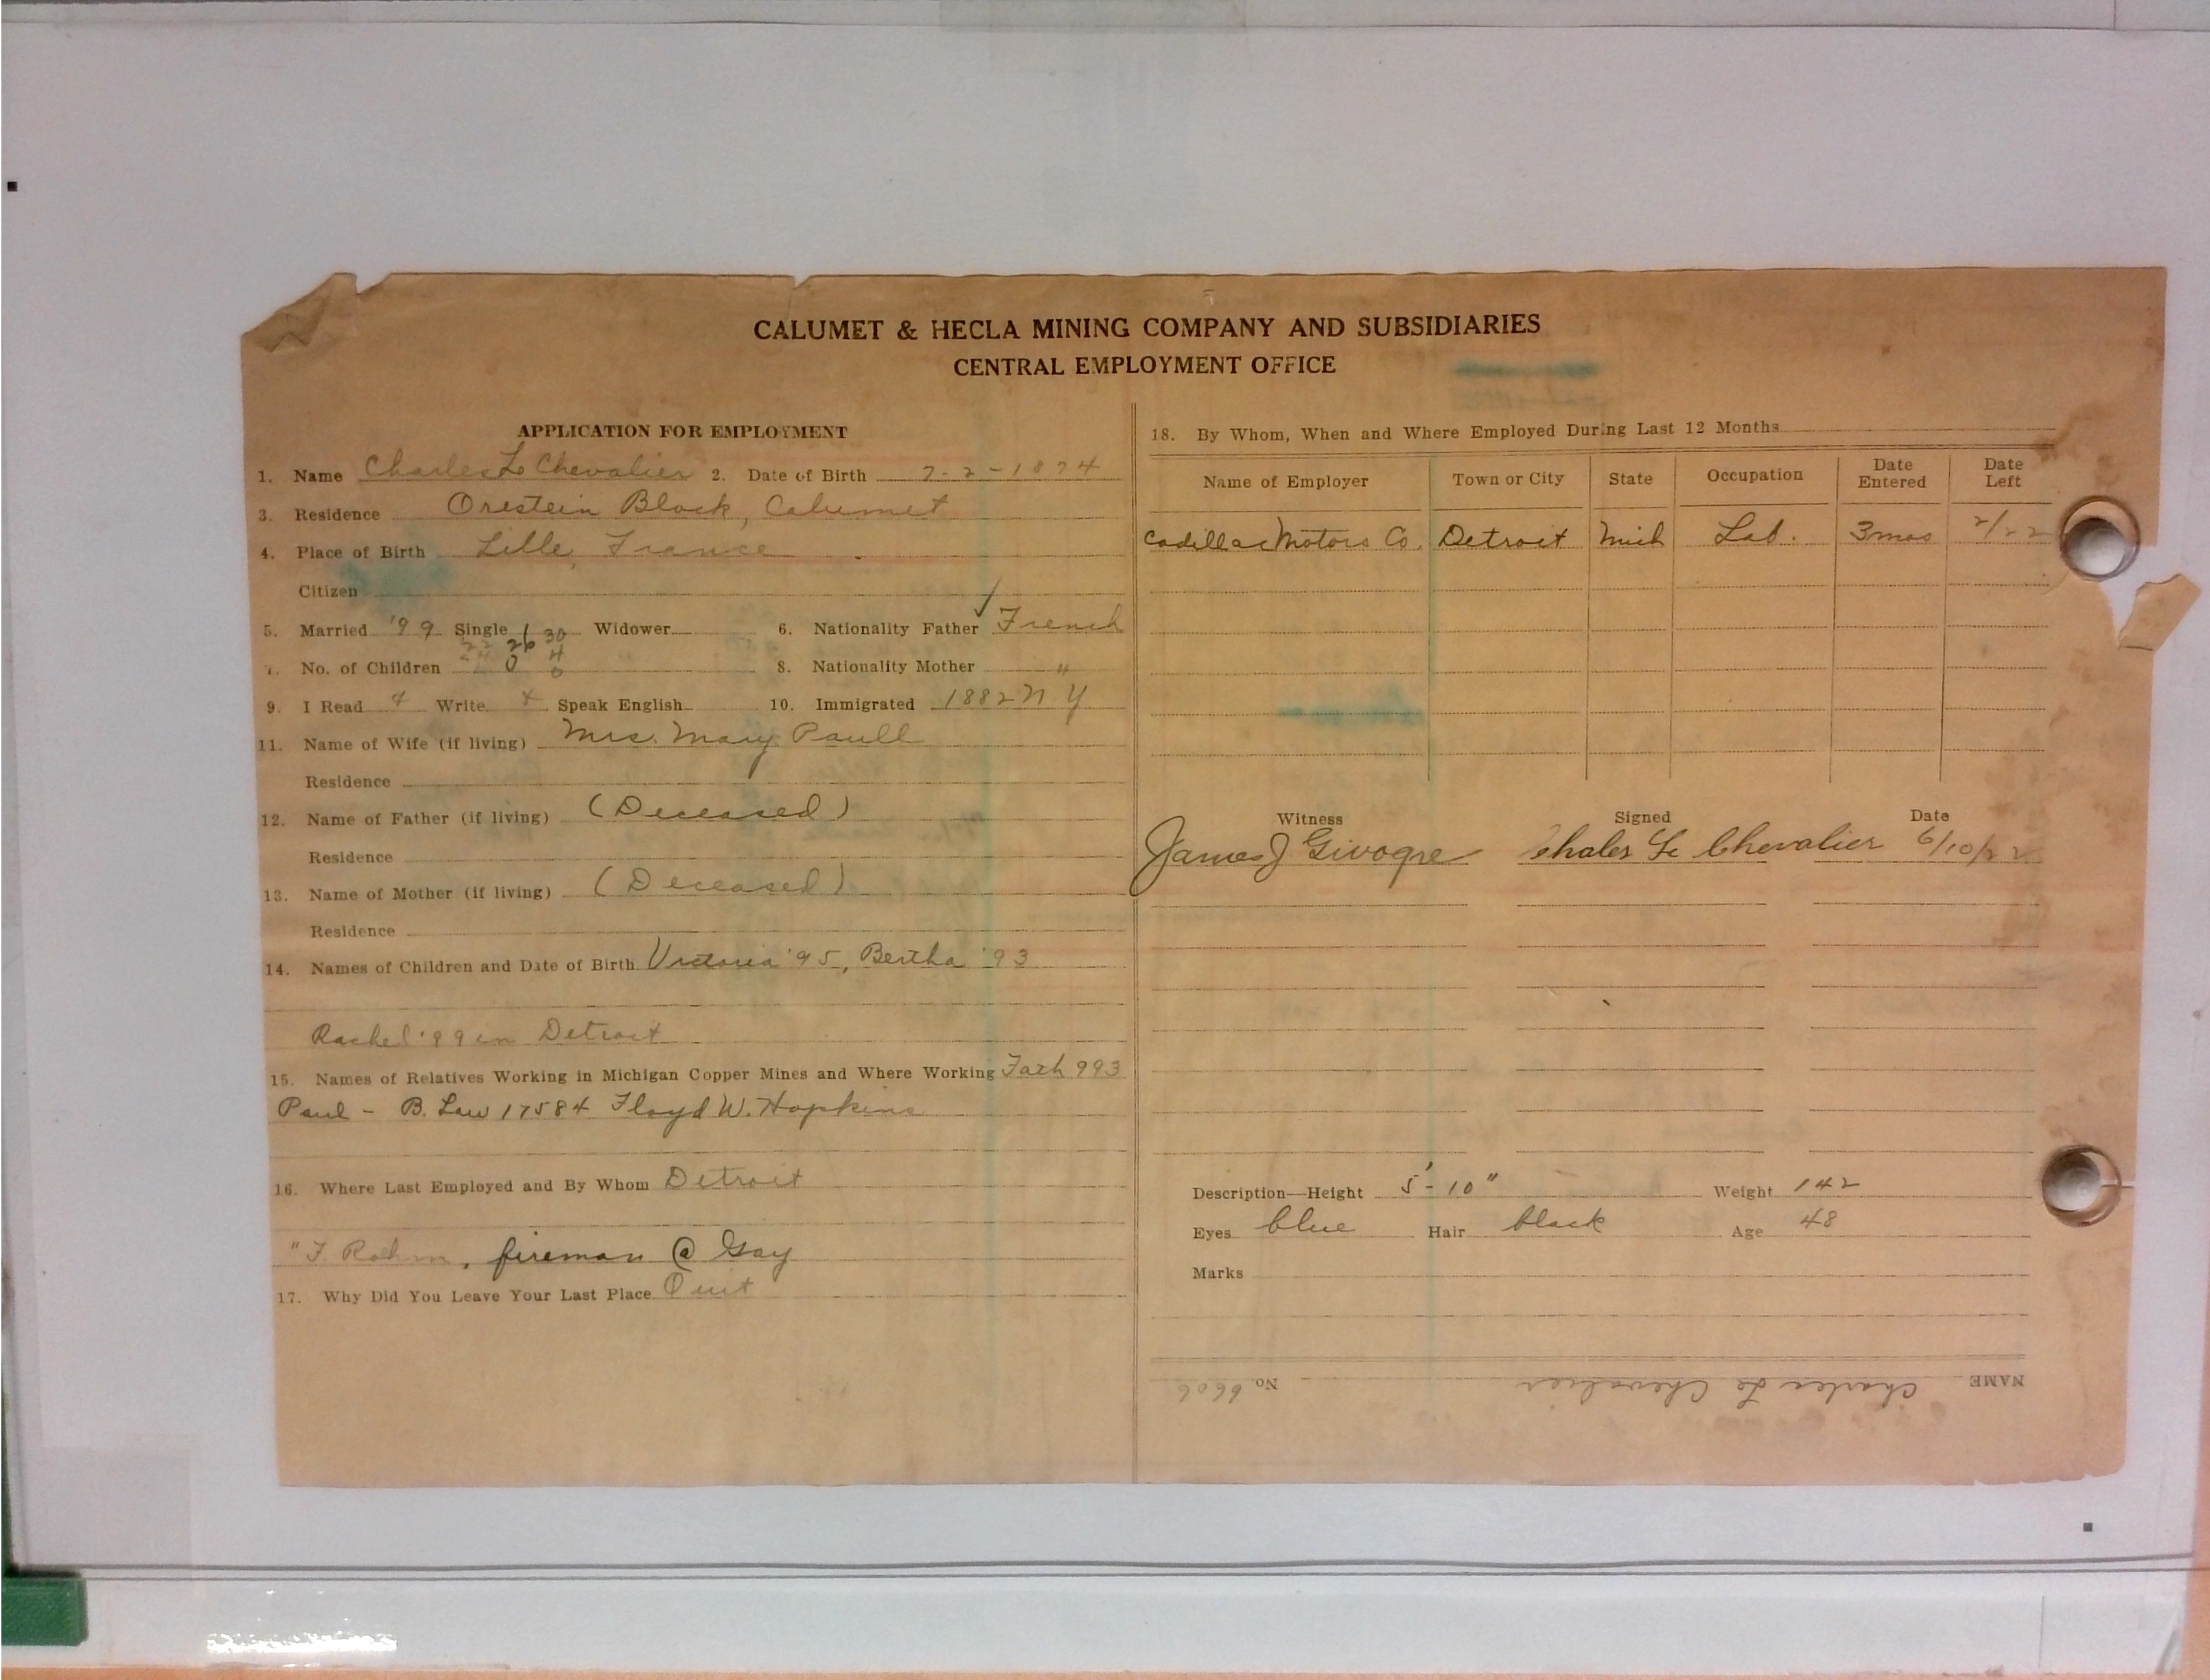 CALUMET & HECLA MINING COMPANY AND SUBSIDIARIES
CENTRAL EMPLOYMENT OFFICE
APPLICATION FOR EMPLOYMENT
1. Name Charles Le Chevalier 2. Date of Birth 7-2-1874
3. Residence Orestein Block, Calumet
4. Place of Birth Lille, France
Citizen
5. Married '99 Single Widower 6. Nationality Father ✓ French
7. No. of Children 8. Nationality Mother "
9. I Read Write Speak English 10. Immigrated 1882 N Y
11. Name of Wife (if living) Mrs. Mary Paull
Residence
12. Name of Father (if living) (Deceased)
Residence
13. Name of Mother (if living) (Deceased)
Residence
14. Names of Children and Date of Birth Victoria '95, Bertha '93
Rachel '99 in Detroit
15. Names of Relatives Working in Michigan Copper Mines and Where Working 993
Paul - B. Law 17584 Floyd W. Hopkins
16. Where Last Employed and By Whom Detroit
fireman @ Gay
17. Why Did You Leave Your Last Place Quit
18. By Whom, When and Where Employed During Last 12 Months
Name of Employer Town or City State Occupation Date Entered Date Left
Cadillac Motors Co. Detroit Mich Lab. 3mos 2/22
Witness Signed Date
James J Givogre Chales Le Chevalier 6/10/22
Description—Height 5'-10" Weight 142
Eyes blue Hair black Age 48
Marks
NAME Charles Le Chevalier No. 6606